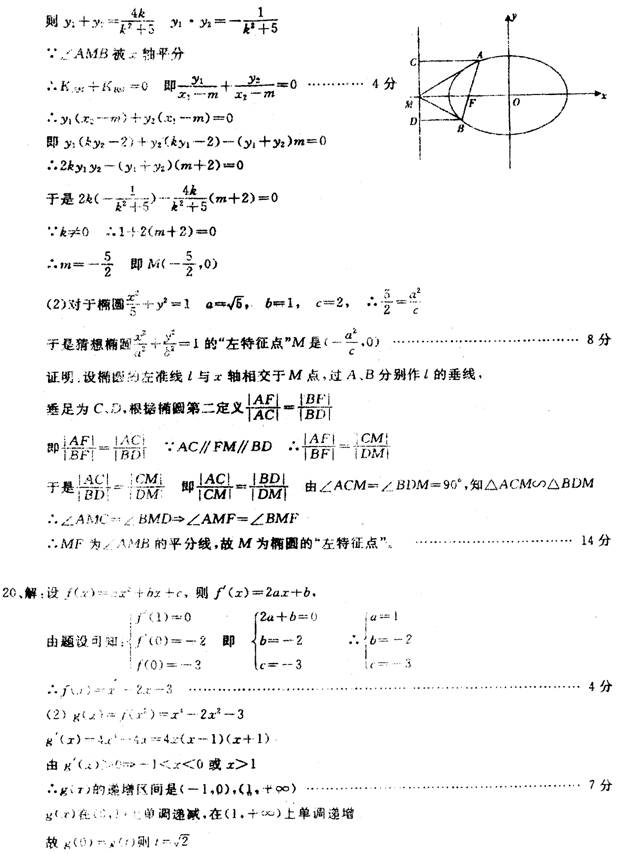 则 y₁+y₂=4k/(k²+5)  y₁·y₂=-1/(k²+5)
∵∠AMB被x轴平分
∴K_AM+K_BM=0 即 y₁/(x₁-m)+y₂/(x₂-m)=0 ………… 4分
∴y₁(x₂-m)+y₂(x₁-m)=0
即 y₁(ky₂-2)+y₂(ky₁-2)-(y₁+y₂)m=0
∴2ky₁y₂-(y₁+y₂)(m+2)=0
于是 2k(-1/(k²+5))-4k/(k²+5)(m+2)=0
∵k≠0 ∴1+2(m+2)=0
∴m=-5/2 即 M(-5/2,0)
y
C
A
M
F
O
x
D
B
(2)对于椭圆x²/5+y²=1 a=√5, b=1, c=2, ∴5/2=a²/c
于是猜想椭圆x²/a²+y²/b²=1的“左特征点”M是(-a²/c,0) ………… 8分
证明:设椭圆的左准线l与x轴相交于M点,过A、B分别作l的垂线,
垂足为C、D,根据椭圆第二定义|AF|/|AC|=|BF|/|BD|
即|AF|/|BF|=|AC|/|BD| ∵AC∥FM∥BD ∴|AF|/|BF|=|CM|/|DM|
于是|AC|/|BD|=|CM|/|DM| 即|AC|/|CM|=|BD|/|DM| 由∠ACM=∠BDM=90°,知△ACM∽△BDM
∴∠AMC=∠BMD⇒∠AMF=∠BMF
∴MF为∠AMB的平分线,故M为椭圆的“左特征点”。 ………… 14分
20、解:设f(x)=ax²+bx+c, 则f′(x)=2ax+b,
由题设可知:{f′(1)=0 f′(0)=-2 f(0)=-3 即 {2a+b=0 b=-2 c=-3 ∴{a=1 b=-2 c=-3
∴f(x)=x²-2x-3 ………… 4分
(2) g(x)=f(x²)=x⁴-2x²-3
g′(x)=4x³-4x=4x(x-1)(x+1)
由g′(x)>0⇒-1<x<0或x>1
∴g(x)的递增区间是(-1,0),(1,+∞) ………… 7分
g(x)在(0,1)上单调递减,在(1,+∞)上单调递增
故g(0)=g(t)则t=√2